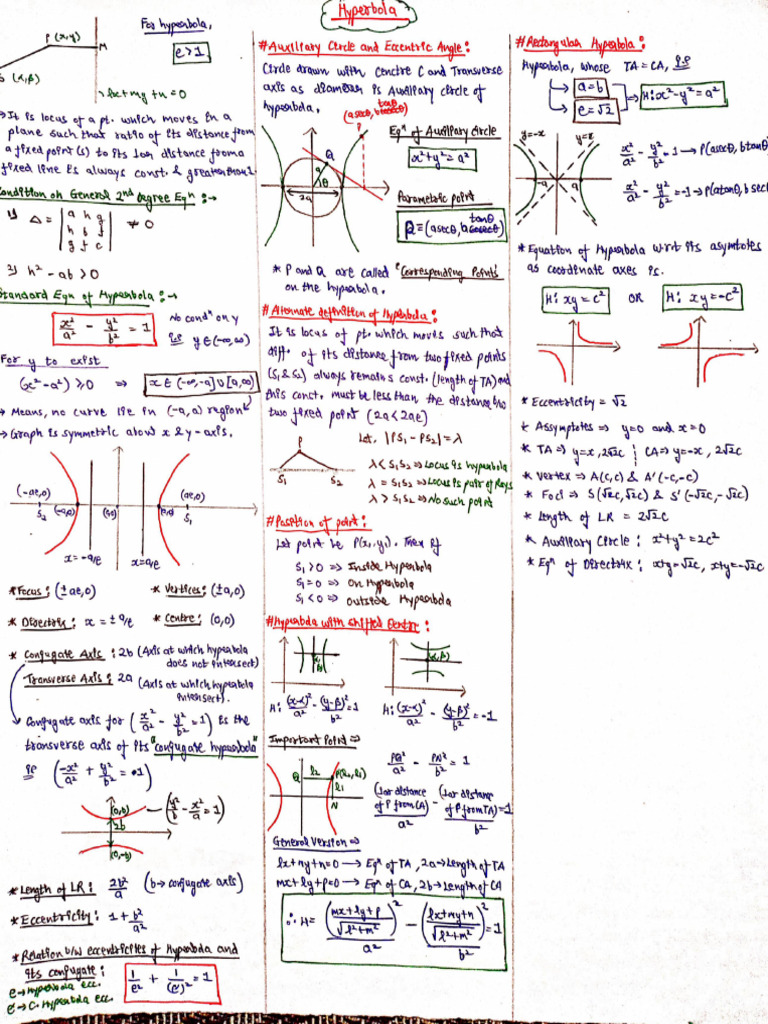 Hyperbola
For hyperbola,
P (x,y)
M
e>1
S (α,β)
lx+my+n=0
→ It is locus of a pt. which moves in a
plane such that ratio of its distance from
a fixed point(s) to its ⊥ar distance from a
fixed line is always const. & greater than 1
Condition on General 2nd degree Eqn :→
1) Δ = | a h g | ≠ 0
| h b f |
| g f c |
2) h² - ab > 0
Standard Eqn of Hyperbola :→
x²/a² - y²/b² = 1
No condn on y
i.e y∈(-∞,∞)
For y to exist
(x²-a²) ≥ 0 ⇒ x∈(-∞,-a]∪[a,∞)
→ Means, no curve lie in (-a,a) region
→ Graph is symmetric about x & y-axis.
(-ae,0)
S2
(-a,0)
(0,0)
(a,0)
(ae,0)
S1
x=-a/e
x=a/e
* Focus: (±ae,0)
* Vertices: (±a,0)
* Directrix: x = ±a/e
* Centre: (0,0)
* Conjugate Axis: 2b (Axis at which hyperbola
does not intersect)
Transverse Axis: 2a (Axis at which hyperbola
intersect).
Conjugate axis for (x²/a² - y²/b² = 1) is the
transverse axis of its "conjugate hyperbola"
i.e (-x²/a² + y²/b² = 1)
(0,b)
2b
(0,-b)
(y²/b - x²/a = 1)
* Length of LR: 2b²/a (b→conjugate axis)
* Eccentricity: 1 + b²/a²
* Relation b/w eccentricities of Hyperbola and
its conjugate:
e→Hyperbola ecc.
e'→C. Hyperbola ecc.
1/e² + 1/(e')² = 1
# Auxiliary Circle and Eccentric Angle:
Circle drawn with Centre C and Transverse
axis as diameter is Auxiliary circle of
hyperbola.
tanθ
(asecθ, b
P
Q
a
θ
2a
Eqn of Auxiliary circle
x²+y²=a²
Parametric point
tanθ
P=(asecθ,
* P and Q are called "Corresponding Points"
on the hyperbola.
# Alternate definition of Hyperbola:
It is locus of pt. which moves such that
diff. of its distance from two fixed points
(S1 & S2) always remains const. (length of TA) and
this const. must be less than the distance b/w
two fixed point (2a<2ae)
P
S1
S2
Let, |PS1 - PS2| = λ
λ < S1S2 ⇒ Locus is hyperbola
λ = S1S2 ⇒ Locus is pair of Rays
λ > S1S2 ⇒ No such point
# Position of point:
Let point be P(x1,y1). Then if
S1 > 0 ⇒ Inside Hyperbola
S1 = 0 ⇒ On Hyperbola
S1 < 0 ⇒ Outside Hyperbola
# Hyperbola with Shifted Centre:
(α,β)
H: (x-α)²/a² - (y-β)²/b² = 1
H: (x-α)²/a² - (y-β)²/b² = -1
Important Point ⇒
Q
N
PQ²/a² - PN²/b² = 1
(⊥ar distance of P from CA)²/a² - (⊥ar distance of P from TA)²/b² = 1
General Version ⇒
lx+my+n=0 → Eqn of TA, 2a→Length of TA
mx+ly+p=0 → Eqn of CA, 2b→Length of CA
∴ H= ((mx+ly+p)/√(l²+m²))²/a² - ((lx+my+n)/√(l²+m²))²/b² = 1
# Rectangular Hyperbola:
Hyperbola, whose TA=CA, i.e
a=b
e=√2
H: x²-y²=a²
y=-x
y=x
-a
a
x²/a² - y²/b² = 1 → P(asecθ, btanθ)
x²/a² - y²/b² = -1 → P(atanθ, bsec
* Equation of Hyperbola w.r.t its asymtotes
as coordinate axes is.
H: xy=c² OR H: xy=-c²
* Eccentricity = √2
* Assymptotes ⇒ y=0 and x=0
* TA ⇒ y=x, 2√2c ; CA ⇒ y=-x, 2√2c
* Vertex ⇒ A(c,c) & A'(-c,-c)
* Foci ⇒ S(√2c,√2c) & S'(-√2c,-√2c)
* Length of LR = 2√2c
* Auxiliary Circle: x²+y²=2c²
* Eqn of Directrix: x+y=√2c, x+y=-√2c